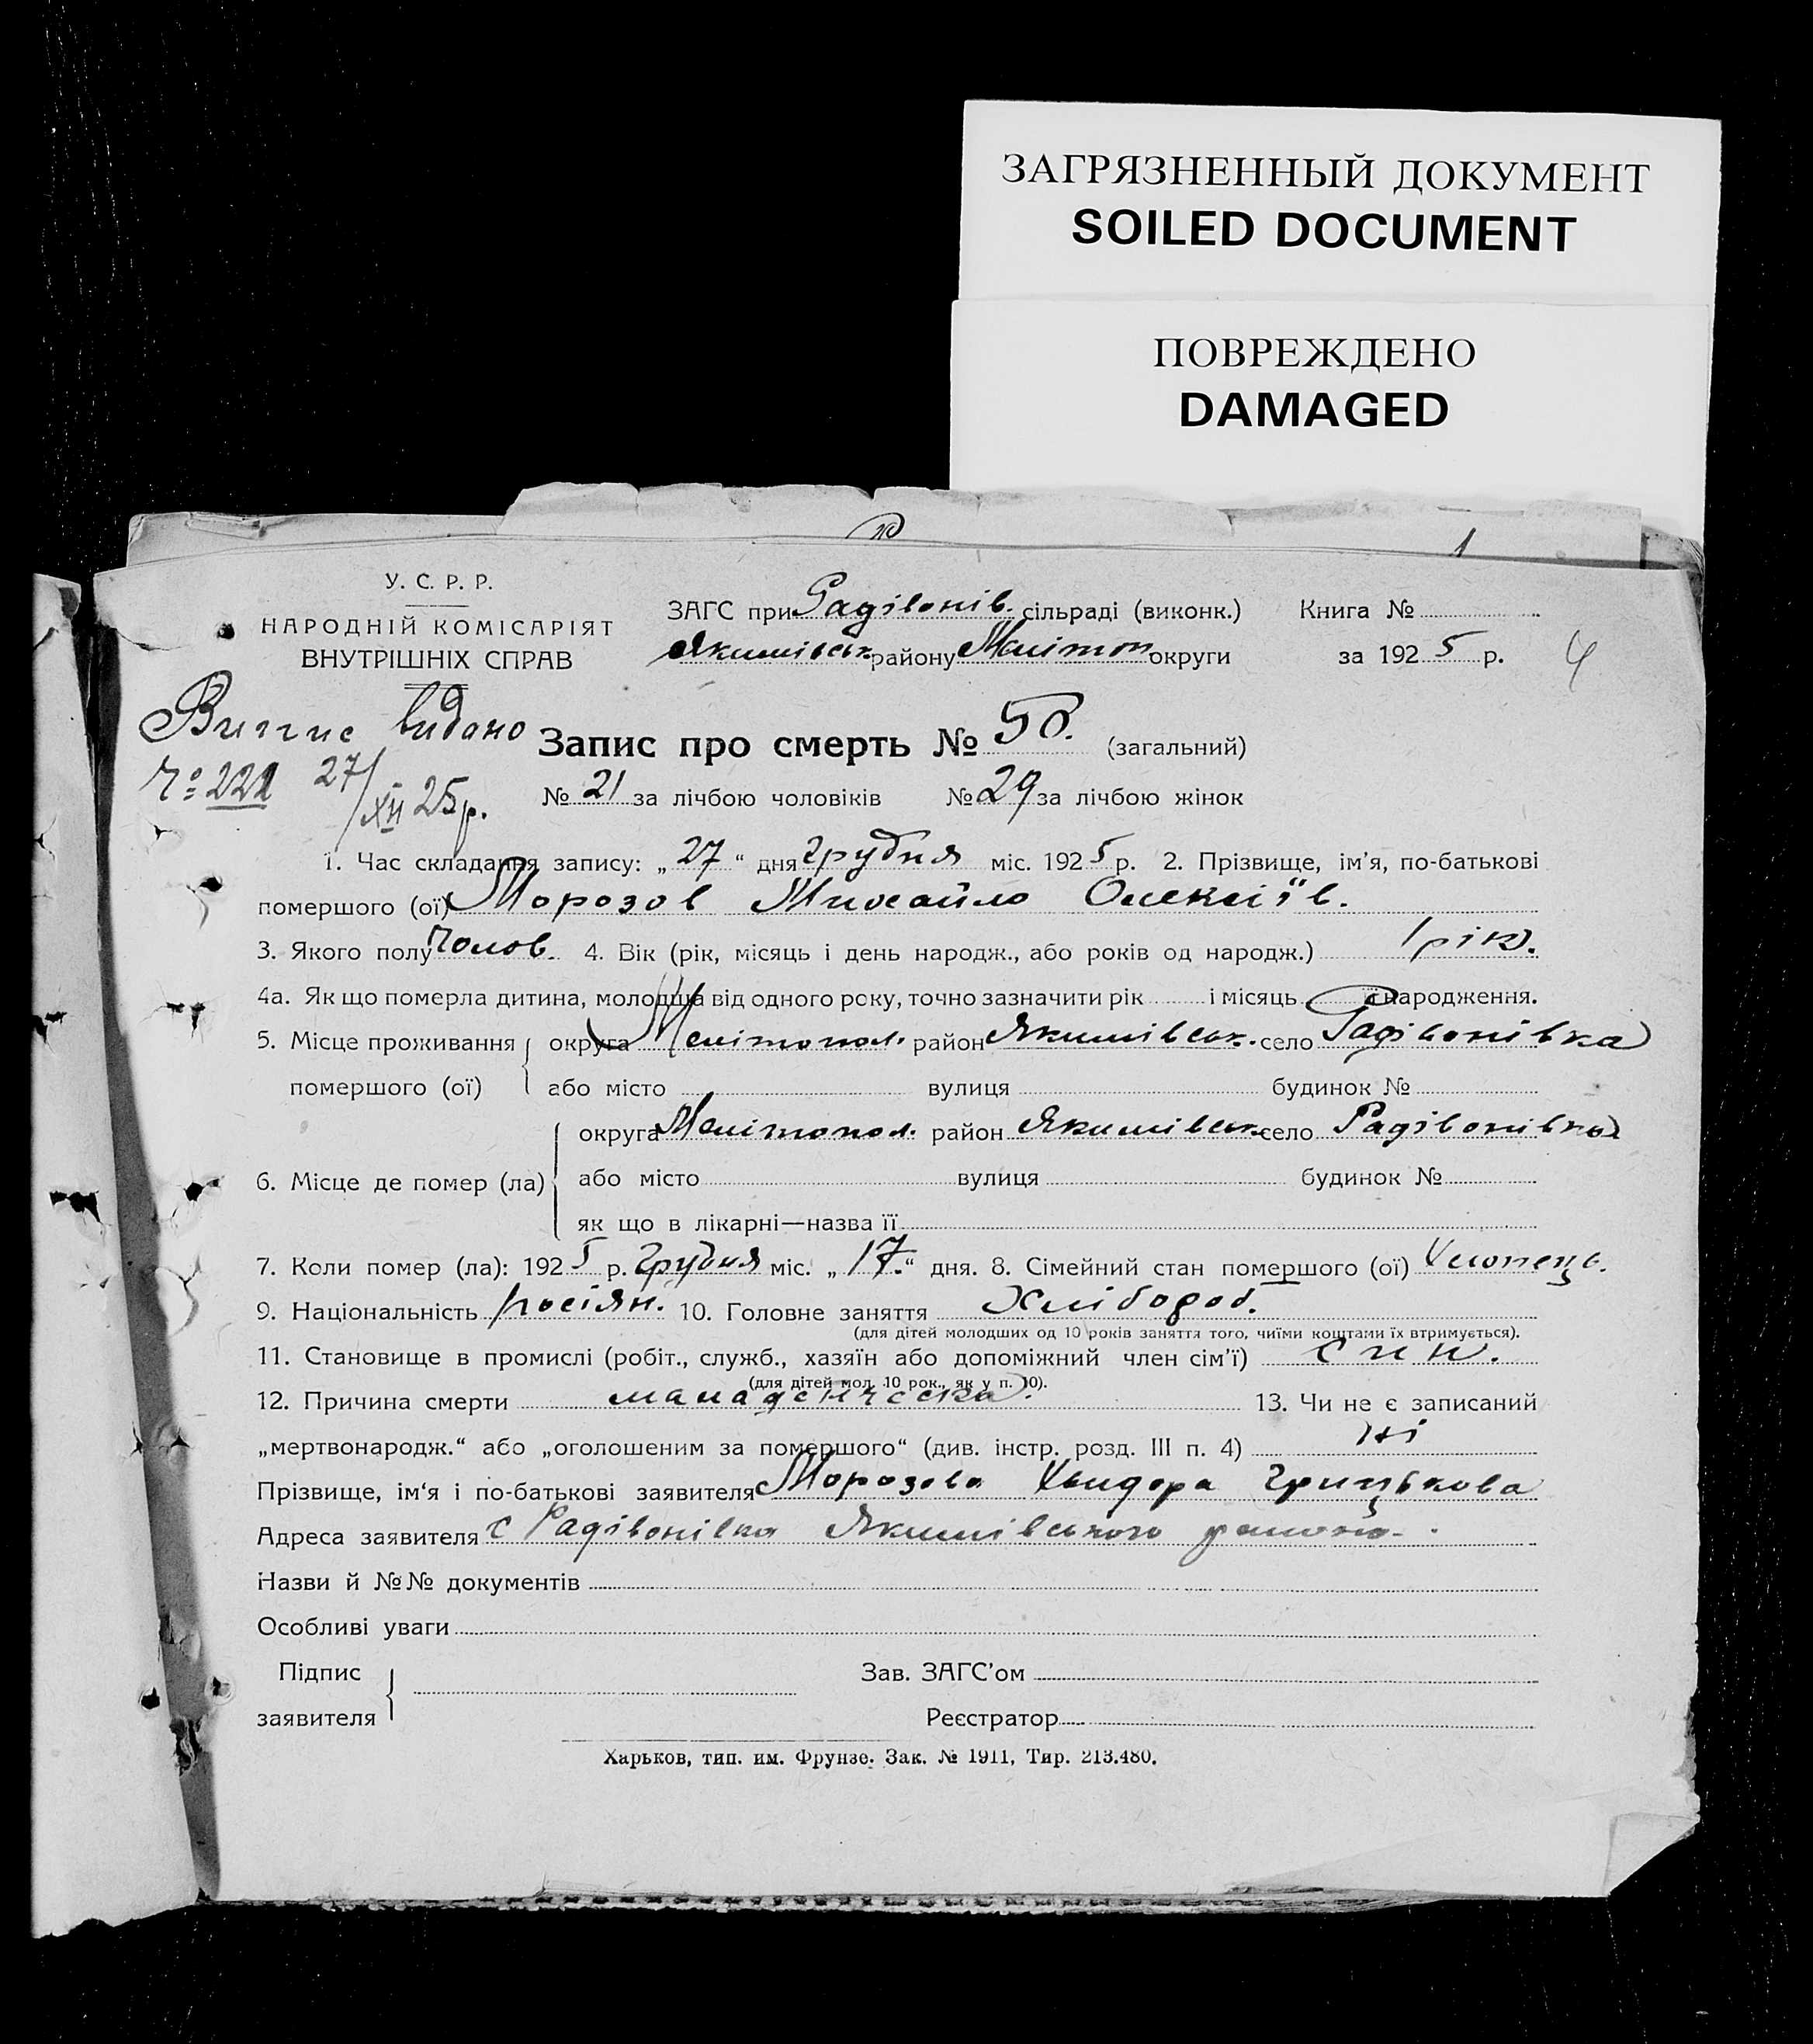 ЗАГРЯЗНЕННЫЙ ДОКУМЕНТ
SOILED DOCUMENT
ПОВРЕЖДЕНО
DAMAGED
1
У. С. Р. Р.
НАРОДНІЙ КОМІСАРІЯТ
ВНУТРІШНІХ СПРАВ
ЗАГС при Радівонів. сільраді (виконк.) Книга №
Якимівськ району Мелітоп округи за 1925 р. 4
Випис видано
№ 222 27/XII 25р.
Запис про смерть № 50. (загальний)
№ 21 за лічбою чоловіків № 29 за лічбою жінок
1. Час складання запису: „27“ дня грудня міс. 1925 р. 2. Прізвище, ім’я, по-батькові
помершого (ої) Морозов Михайло Олексіїв.
3. Якого полу чолов. 4. Вік (рік, місяць і день народж., або років од народж.) 1 рік.
4а. Як що померла дитина, молодша від одного року, точно зазначити рік і місяць її народження.
5. Місце проживання округа Мелітопол. район Якимівськ. село Радівонівка
помершого (ої) або місто вулиця будинок №
округа Мелітопол. район Якимівськ. село Радівонівка
6. Місце де помер (ла) або місто вулиця будинок №
як що в лікарні—назва її
7. Коли помер (ла): 1925 р. Грудня міс. „17.“ дня. 8. Сімейний стан помершого (ої) Хлопець.
9. Національність росіян. 10. Головне заняття Хлібороб.
(для дітей молодших од 10 років заняття того, чиїми коштами їх втримується).
11. Становище в промислі (робіт., служб., хазяїн або допоміжний член сім’ї) син.
(для дітей мол. 10 рок., як у п. 10).
12. Причина смерти 13. Чи не є записаний
„мертвонародж.“ або „оголошеним за помершого“ (див. інстр. розд. III п. 4) ні
Прізвище, ім‘я і по-батькові заявителя Морозова Грицькова
Адреса заявителя с Радівонівка Якимівського району
Назви й №№ документів
Особливі уваги
Підпис Зав. ЗАГС’ом
заявителя Реєстратор
Харьков, тип. им. Фрунзе. Зак. № 1911, Тир. 213.480.